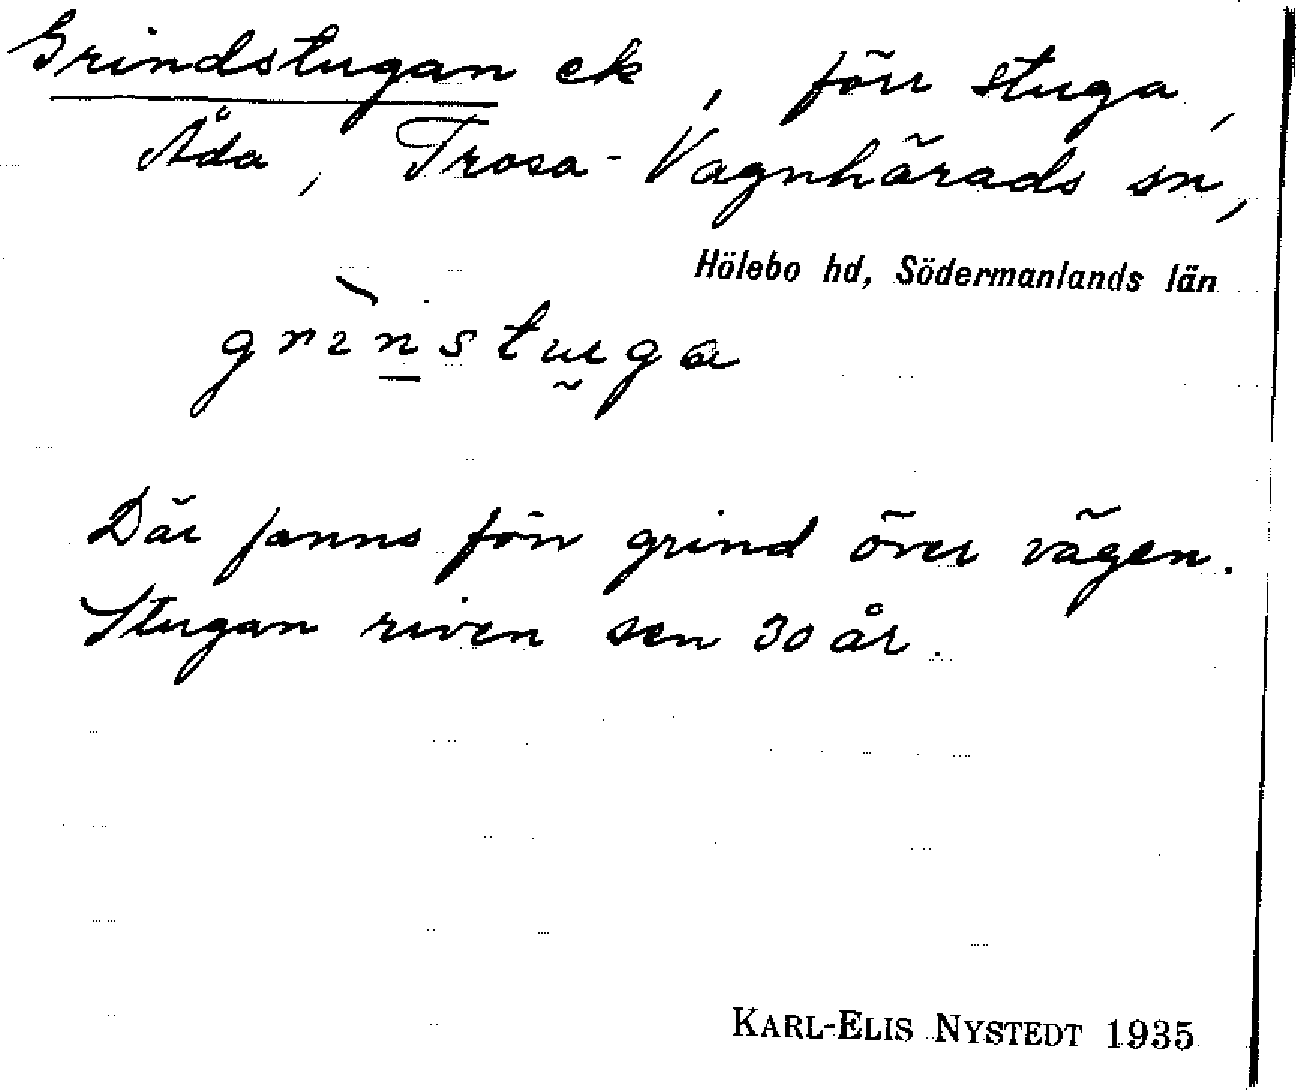 Grindstugan ek, förr stuga,
Åda, Trosa-Vagnhärads sn,
Hölebo hd, Södermanlands län
grinstuga
Där fanns förr grind över vägen.
Stugan riven sen 30 år.
KARL-ELIS NYSTEDT 1935